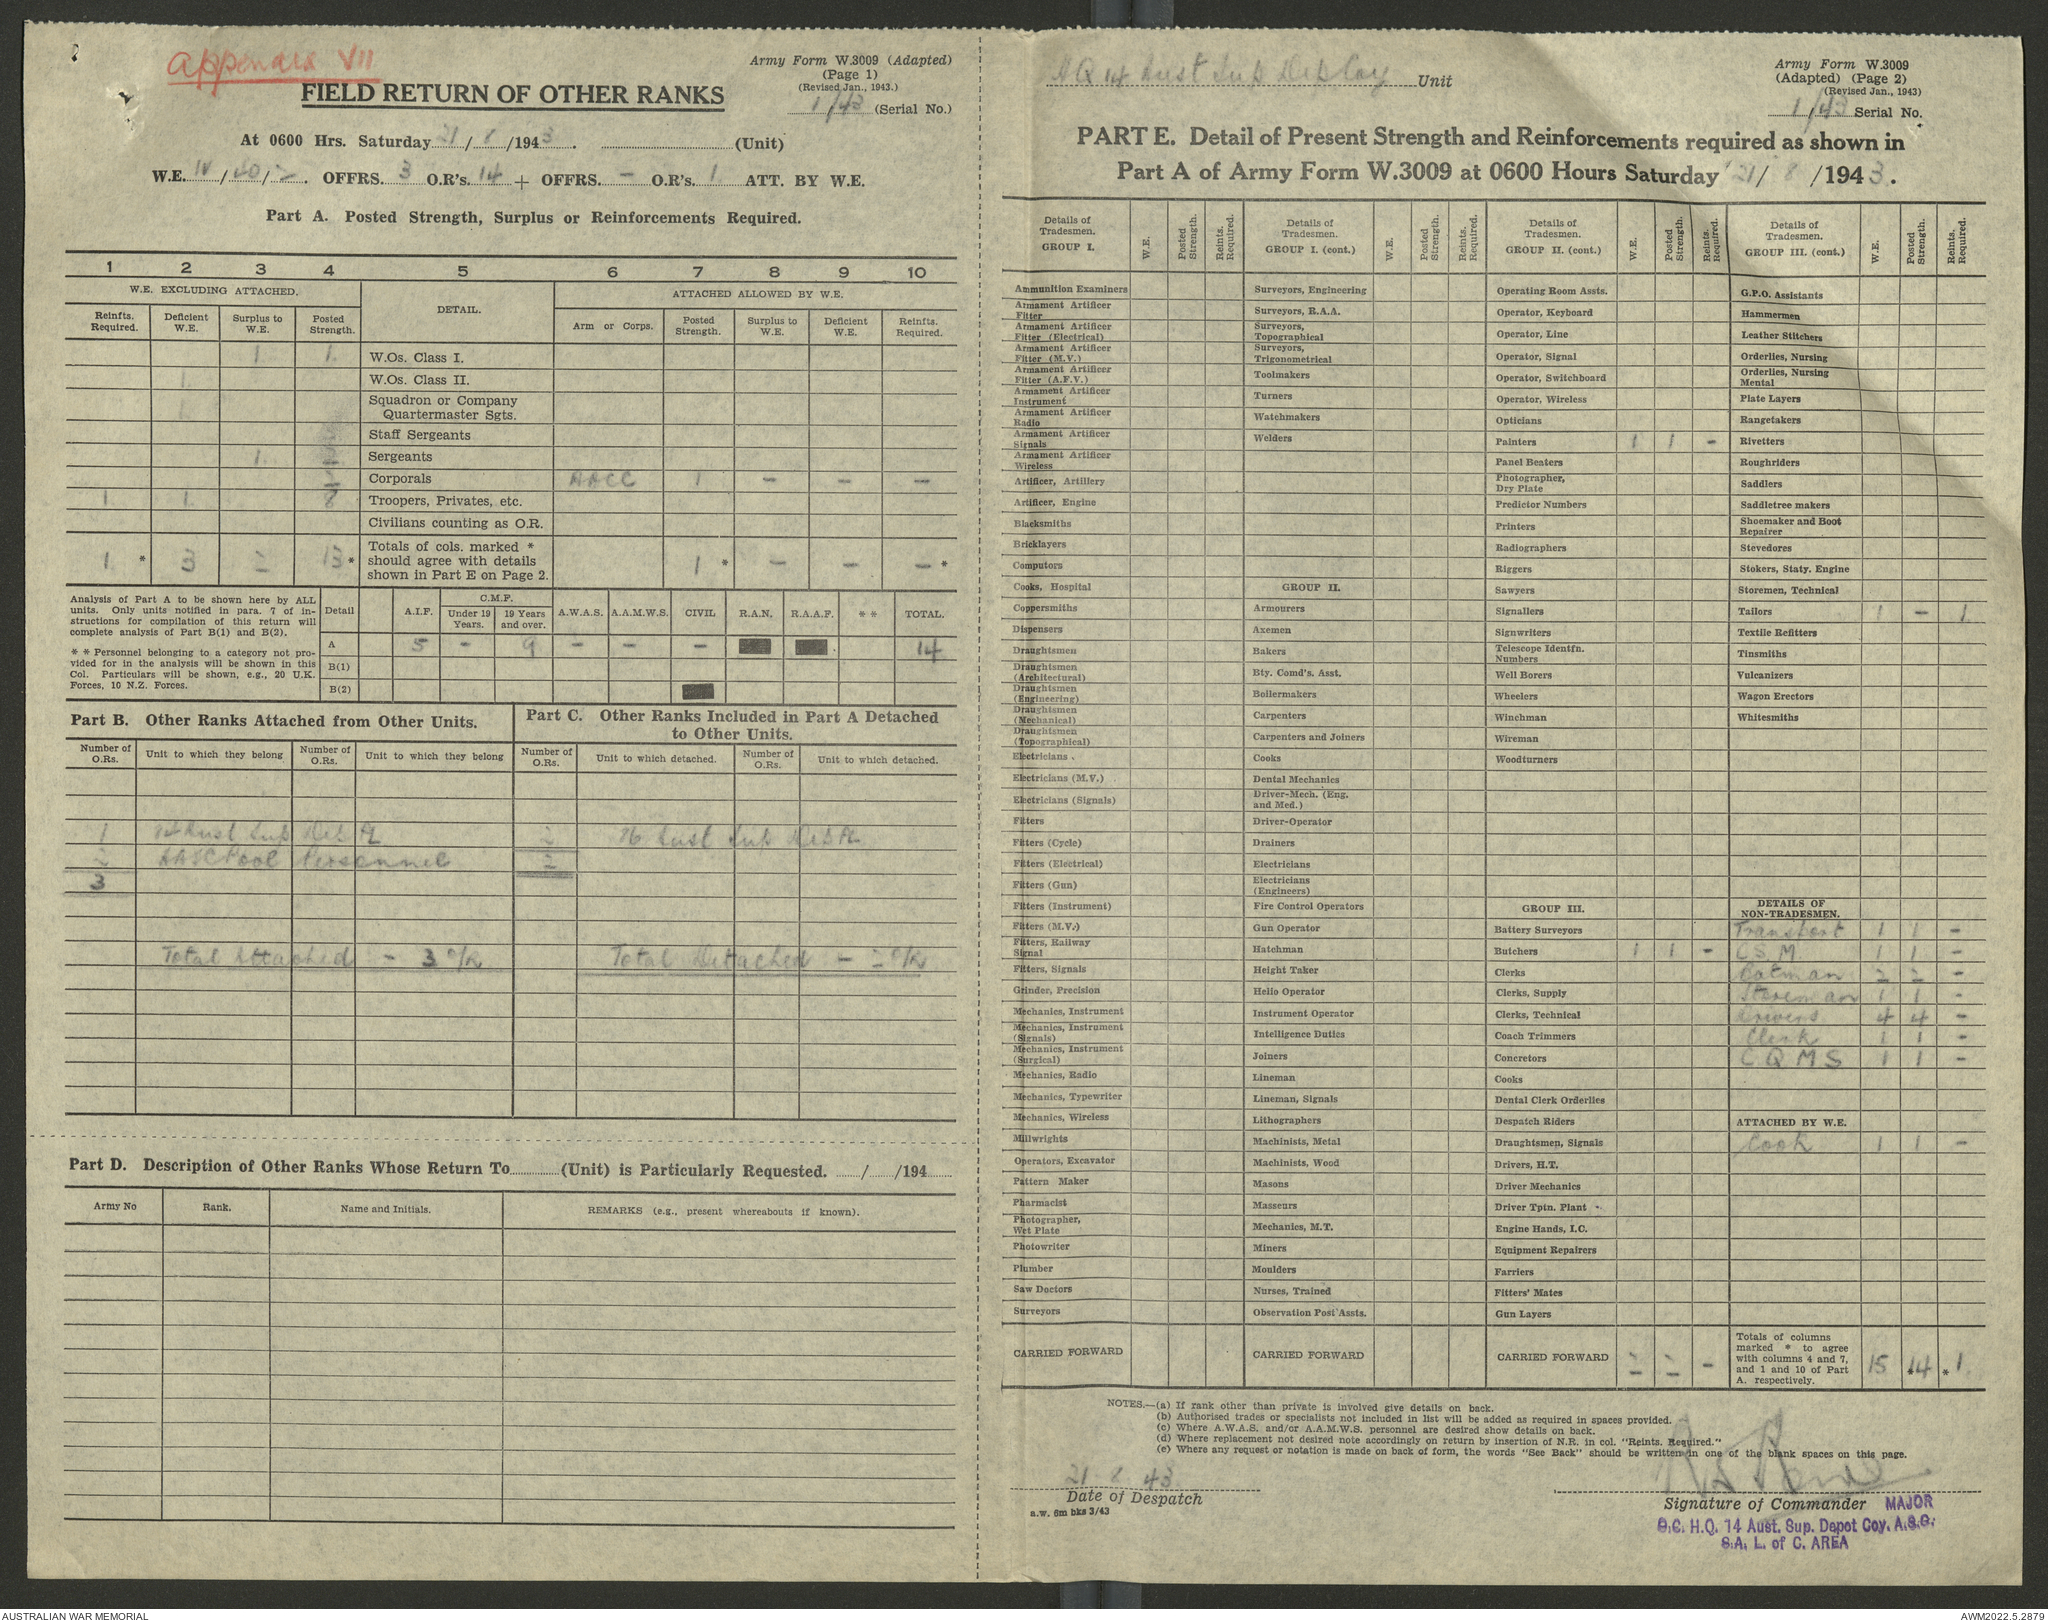 Appendix VII
Army Form W.3009 (Adapted)
(Page 1)
(Revised Jan., 1943.)
1/43 (Serial No.)
FIELD RETURN OF OTHER RANKS
At 0600 Hrs. Saturday 21/8/1943. (Unit)
W.E. /40/2. OFFRS. 3 O.R's. 14 + OFFRS. - O.R's. 1 ATT. BY W.E.
Part A. Posted Strength, Surplus or Reinforcements Required.
1 2 3 4 5 6 7 8 9 10
W.E. EXCLUDING ATTACHED. DETAIL. ATTACHED ALLOWED BY W.E.
Reinfts. Required. Deficient W.E. Surplus to W.E. Posted Strength. Arm or Corps. Posted Strength. Surplus to W.E. Deficient W.E. Reinfts. Required.
1 1 W.Os. Class I.
1 W.Os. Class II.
1 Squadron or Company Quartermaster Sgts.
Staff Sergeants
1 Sergeants
Corporals AACC 1 - - -
1 1 8 Troopers, Privates, etc.
Civilians counting as O.R.
1 * 3 13 * Totals of cols. marked * should agree with details shown in Part E on Page 2. 1 * - - - *
Analysis of Part A to be shown here by ALL units. Only units notified in para. 7 of instructions for compilation of this return will complete analysis of Part B(1) and B(2).
* * Personnel belonging to a category not provided for in the analysis will be shown in this Col. Particulars will be shown, e.g., 20 U.K. Forces, 10 N.Z. Forces.
Detail A.I.F. C.M.F. Under 19 Years. 19 Years and over. A.W.A.S. A.A.M.W.S. CIVIL R.A.N. R.A.A.F. * * TOTAL.
A 5 - 9 - - - 14
B(1)
B(2)
Part B. Other Ranks Attached from Other Units.
Number of O.Rs. Unit to which they belong Number of O.Rs. Unit to which they belong
1 Aust Sup Dep Pl
2 AASC Pool Personnel
3
Total Attached - 3 O/R
Part C. Other Ranks Included in Part A Detached to Other Units.
Number of O.Rs. Unit to which detached. Number of O.Rs. Unit to which detached.
2 76 Aust Sup Dep Pl
2
Total Detached - 2 O/R
Part D. Description of Other Ranks Whose Return To (Unit) is Particularly Requested. / /194
Army No Rank. Name and Initials. REMARKS (e.g., present whereabouts if known).
HQ 14 Aust Sup Dep Coy Unit
Army Form W.3009
(Adapted) (Page 2)
(Revised Jan., 1943)
1/43 Serial No.
PART E. Detail of Present Strength and Reinforcements required as shown in
Part A of Army Form W.3009 at 0600 Hours Saturday 21/8/1943.
Details of Tradesmen. GROUP I. W.E. Posted Strength. Reints. Required.
Ammunition Examiners
Armament Artificer Fitter
Armament Artificer Fitter (Electrical)
Armament Artificer Fitter (M.V.)
Armament Artificer Fitter (A.F.V.)
Armament Artificer Instrument
Armament Artificer Radio
Armament Artificer Signals
Armament Artificer Wireless
Artificer, Artillery
Artificer, Engine
Blacksmiths
Bricklayers
Computors
Cooks, Hospital
Coppersmiths
Dispensers
Draughtsmen
Draughtsmen (Architectural)
Draughtsmen (Engineering)
Draughtsmen (Mechanical)
Draughtsmen (Topographical)
Electricians
Electricians (M.V.)
Electricians (Signals)
Fitters
Fitters (Cycle)
Fitters (Electrical)
Fitters (Gun)
Fitters (Instrument)
Fitters (M.V.)
Fitters, Railway Signal
Fitters, Signals
Grinder, Precision
Mechanics, Instrument
Mechanics, Instrument (Signals)
Mechanics, Instrument (Surgical)
Mechanics, Radio
Mechanics, Typewriter
Mechanics, Wireless
Millwrights
Operators, Excavator
Pattern Maker
Pharmacist
Photographer, Wet Plate
Photowriter
Plumber
Saw Doctors
Surveyors
CARRIED FORWARD
Details of Tradesmen. GROUP I. (cont.) W.E. Posted Strength. Reints. Required.
Surveyors, Engineering
Surveyors, R.A.A.
Surveyors, Topographical
Surveyors, Trigonometrical
Toolmakers
Turners
Watchmakers
Welders
GROUP II.
Armourers
Axemen
Bakers
Bty. Comd's. Asst.
Boilermakers
Carpenters
Carpenters and Joiners
Cooks
Dental Mechanics
Driver-Mech. (Eng. and Med.)
Driver-Operator
Drainers
Electricians
Electricians (Engineers)
Fire Control Operators
Gun Operator
Hatchman
Height Taker
Helio Operator
Instrument Operator
Intelligence Duties
Joiners
Lineman
Lineman, Signals
Lithographers
Machinists, Metal
Machinists, Wood
Masons
Masseurs
Mechanics, M.T.
Miners
Moulders
Nurses, Trained
Observation Post Assts.
CARRIED FORWARD
Details of Tradesmen. GROUP II. (cont.) W.E. Posted Strength. Reints. Required.
Operating Room Assts.
Operator, Keyboard
Operator, Line
Operator, Signal
Operator, Switchboard
Operator, Wireless
Opticians
Painters 1 1 -
Panel Beaters
Photographer, Dry Plate
Predictor Numbers
Printers
Radiographers
Riggers
Sawyers
Signallers
Signwriters
Telescope Identfn. Numbers
Well Borers
Wheelers
Winchman
Wireman
Woodturners
GROUP III.
Battery Surveyors
Butchers 1 1 -
Clerks
Clerks, Supply
Clerks, Technical
Coach Trimmers
Concretors
Cooks
Dental Clerk Orderlies
Despatch Riders
Draughtsmen, Signals
Drivers, H.T.
Driver Mechanics
Driver Tptn. Plant
Engine Hands, I.C.
Equipment Repairers
Farriers
Fitters' Mates
Gun Layers
CARRIED FORWARD 2 2 -
Details of Tradesmen. GROUP III. (cont.) W.E. Posted Strength. Reints. Required.
G.P.O. Assistants
Hammermen
Leather Stitchers
Orderlies, Nursing
Orderlies, Nursing Mental
Plate Layers
Rangetakers
Rivetters
Roughriders
Saddlers
Saddletree makers
Shoemaker and Boot Repairer
Stevedores
Stokers, Staty. Engine
Storemen, Technical
Tailors 1 - 1
Textile Refitters
Tinsmiths
Vulcanizers
Wagon Erectors
Whitesmiths
DETAILS OF NON-TRADESMEN.
Transport 1 1 -
C S M 1 1 -
Batman 2 2 -
Storeman 1 1 -
Drivers 4 4 -
Clerk 1 1 -
C Q M S 1 1 -
ATTACHED BY W.E.
Cook 1 1 -
Totals of columns marked * to agree with columns 4 and 7, and 1 and 10 of Part A. respectively. 15 *14 *1
NOTES.—(a) If rank other than private is involved give details on back.
(b) Authorised trades or specialists not included in list will be added as required in spaces provided.
(c) Where A.W.A.S. and/or A.A.M.W.S. personnel are desired show details on back.
(d) Where replacement not desired note accordingly on return by insertion of N.R. in col. "Reints. Required."
(e) Where any request or notation is made on back of form, the words "See Back" should be written in one of the blank spaces on this page.
21 8 43
Date of Despatch
a.w. 6m bks 3/43
Signature of Commander MAJOR
O.C. H.Q. 14 Aust. Sup. Depot Coy. A.S.C.
S.A. L. of C. AREA
AUSTRALIAN WAR MEMORIAL
AWM2022.5.2879